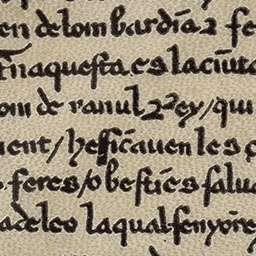 en de lombardia ⁊ fe
En aquesta es la ciuta
om de ranul Rey / qui
uent / he fficauen les
feres / o besties salua
adeleo laqual senyore